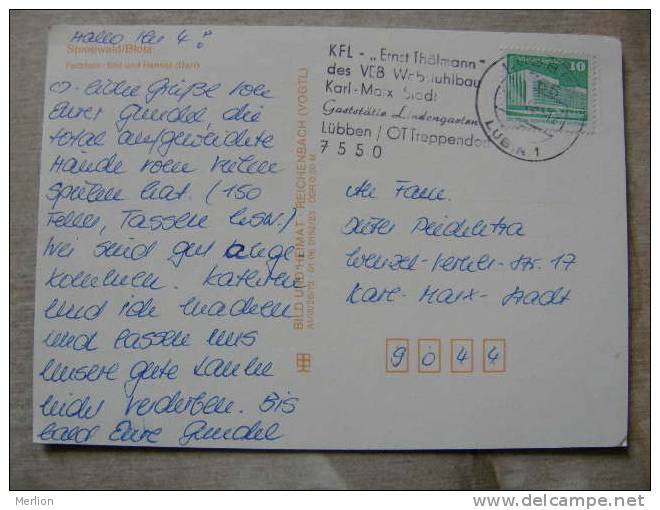 Hallo Ihr 4!
Spreewald/Blota
Farbfoto: Bild und Heimat (Darr)
liebe Grüße von
Eurer Gundel, die
total aufgeweichte
Hände vom vielen
Spülen hat. (150
Teller, Tassen usw.)
Wir sind gut ange
kommen. Kathrin
und ich machen
und lassen uns
unsere gute Laune
nicht verderben. Bis
bald Eure Gundel
BILD UND HEIMAT REICHENBACH (VOGTL)
KFL - „Ernst Thälmann"
des VEB Webstuhlbau
Karl-Marx-Stadt
Gaststätte Lindengarten
Lübben / OT Treppendorf
7550
10
LÜBBEN 1
An Fam.
Wenzel-Verner-Str. 17
Karl-Marx-Stadt
9044
Merlion
http://www.delcampe.net